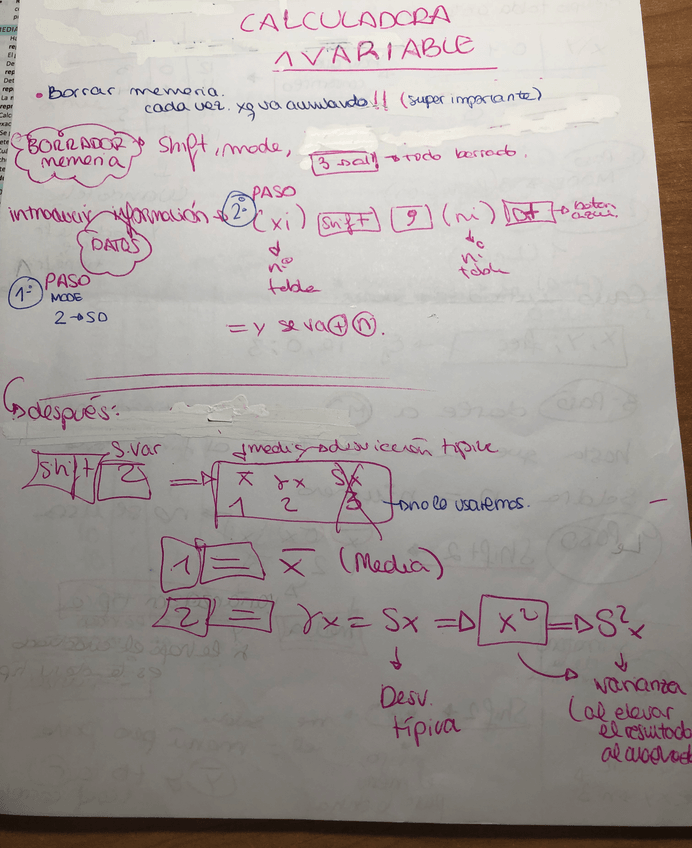 CALCULADORA
1 VARIABLE
• Borrar memoria.
cada vez. xq va aumulando!! (super importante)
BORRADOR memoria → Shift, mode, 3 → todo borrado.
PASO
introducir información → 2º (xi) shift 9 (ni) → botón azul.
DATOS
nº tabla
ni tabla
1º PASO
MODE
2 → SD
= y se va + n.
↳ después:
S.var
Shift 2 ⇒
media desviación típica
x̄ γx Sx
1 2 3 → no lo usaremos.
1 = x̄ (Media)
2 = γx = Sx ⇒ x² ⇒ S²x
Desv. típica
varianza
(al elevar
el resultado
al cuadrado